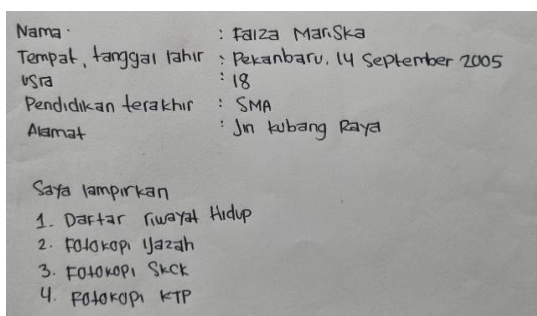 Nama : Faiza Mariska
Tempat, tanggal lahir : Pekanbaru, 14 September 2005
Usia : 18
Pendidikan terakhir : SMA
Alamat : Jln Kubang Raya
Saya lampirkan
1. Daftar riwayat Hidup
2. Fotokopi Ijazah
3. Fotokopi Skck
4. Fotokopi KTP